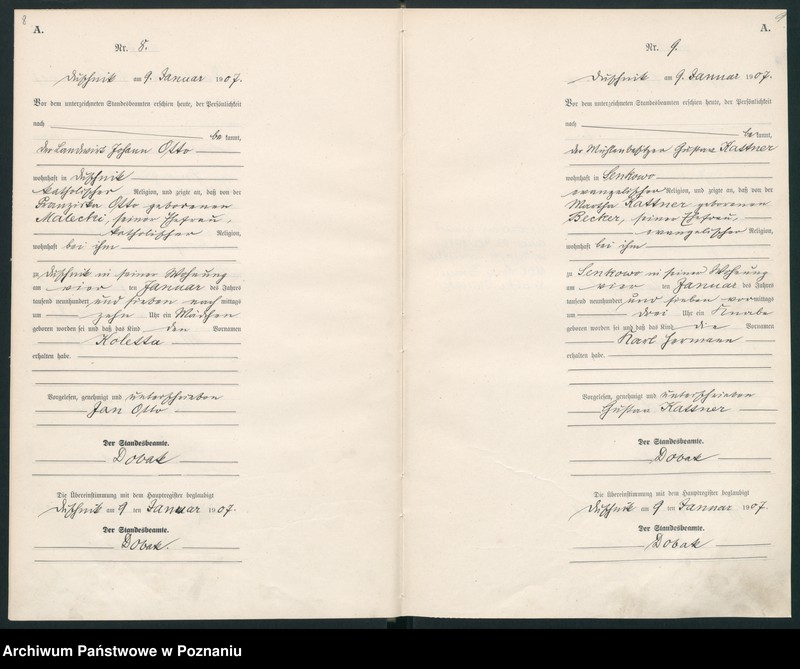 8
A.
Nr. 8.
Duschnik am 9. Januar 1907.
Vor dem unterzeichneten Standesbeamten erschien heute, der Persönlichkeit
nach
be kannt,
der Landwirt Johann Otto
wohnhaft in Duschnik
katholischer Religion, und zeigte an, daß von der
Franziska Otto geborenen
Malecki, seiner Ehefrau,
katholischer Religion,
wohnhaft bei ihm
zu Duschnik in seiner Wohnung
am vier ten Januar des Jahres
tausend neunhundert und sieben nach mittags
um zehn Uhr ein Mädchen
geboren worden sei und daß das Kind den Vornamen
Koletta
erhalten habe.
Vorgelesen, genehmigt und unterschrieben
Jan Otto
Der Standesbeamte.
Dobak
Die Übereinstimmung mit dem Hauptregister beglaubigt
Duschnik am 9 ten Januar 1907.
Der Standesbeamte.
Dobak.
9
A.
Nr. 9.
Duschnik am 9. Januar 1907.
Vor dem unterzeichneten Standesbeamten erschien heute, der Persönlichkeit
nach
be kannt,
der Mühlenbesitzer Gustav Kattner
wohnhaft in Senkowo
evangelischer Religion, und zeigte an, daß von der
Martha Kattner geborenen
Becker, seiner Ehefrau,
evangelischer Religion,
wohnhaft bei ihm
zu Senkowo in seiner Wohnung
am vier ten Januar des Jahres
tausend neunhundert und sieben vor mittags
um drei Uhr ein Knabe
geboren worden sei und daß das Kind die Vornamen
Karl Hermann
erhalten habe.
Vorgelesen, genehmigt und unterschrieben
Gustav Kattner
Der Standesbeamte.
Dobak
Die Übereinstimmung mit dem Hauptregister beglaubigt
Duschnik am 9 ten Januar 1907.
Der Standesbeamte.
Dobak
Archiwum Państwowe w Poznaniu